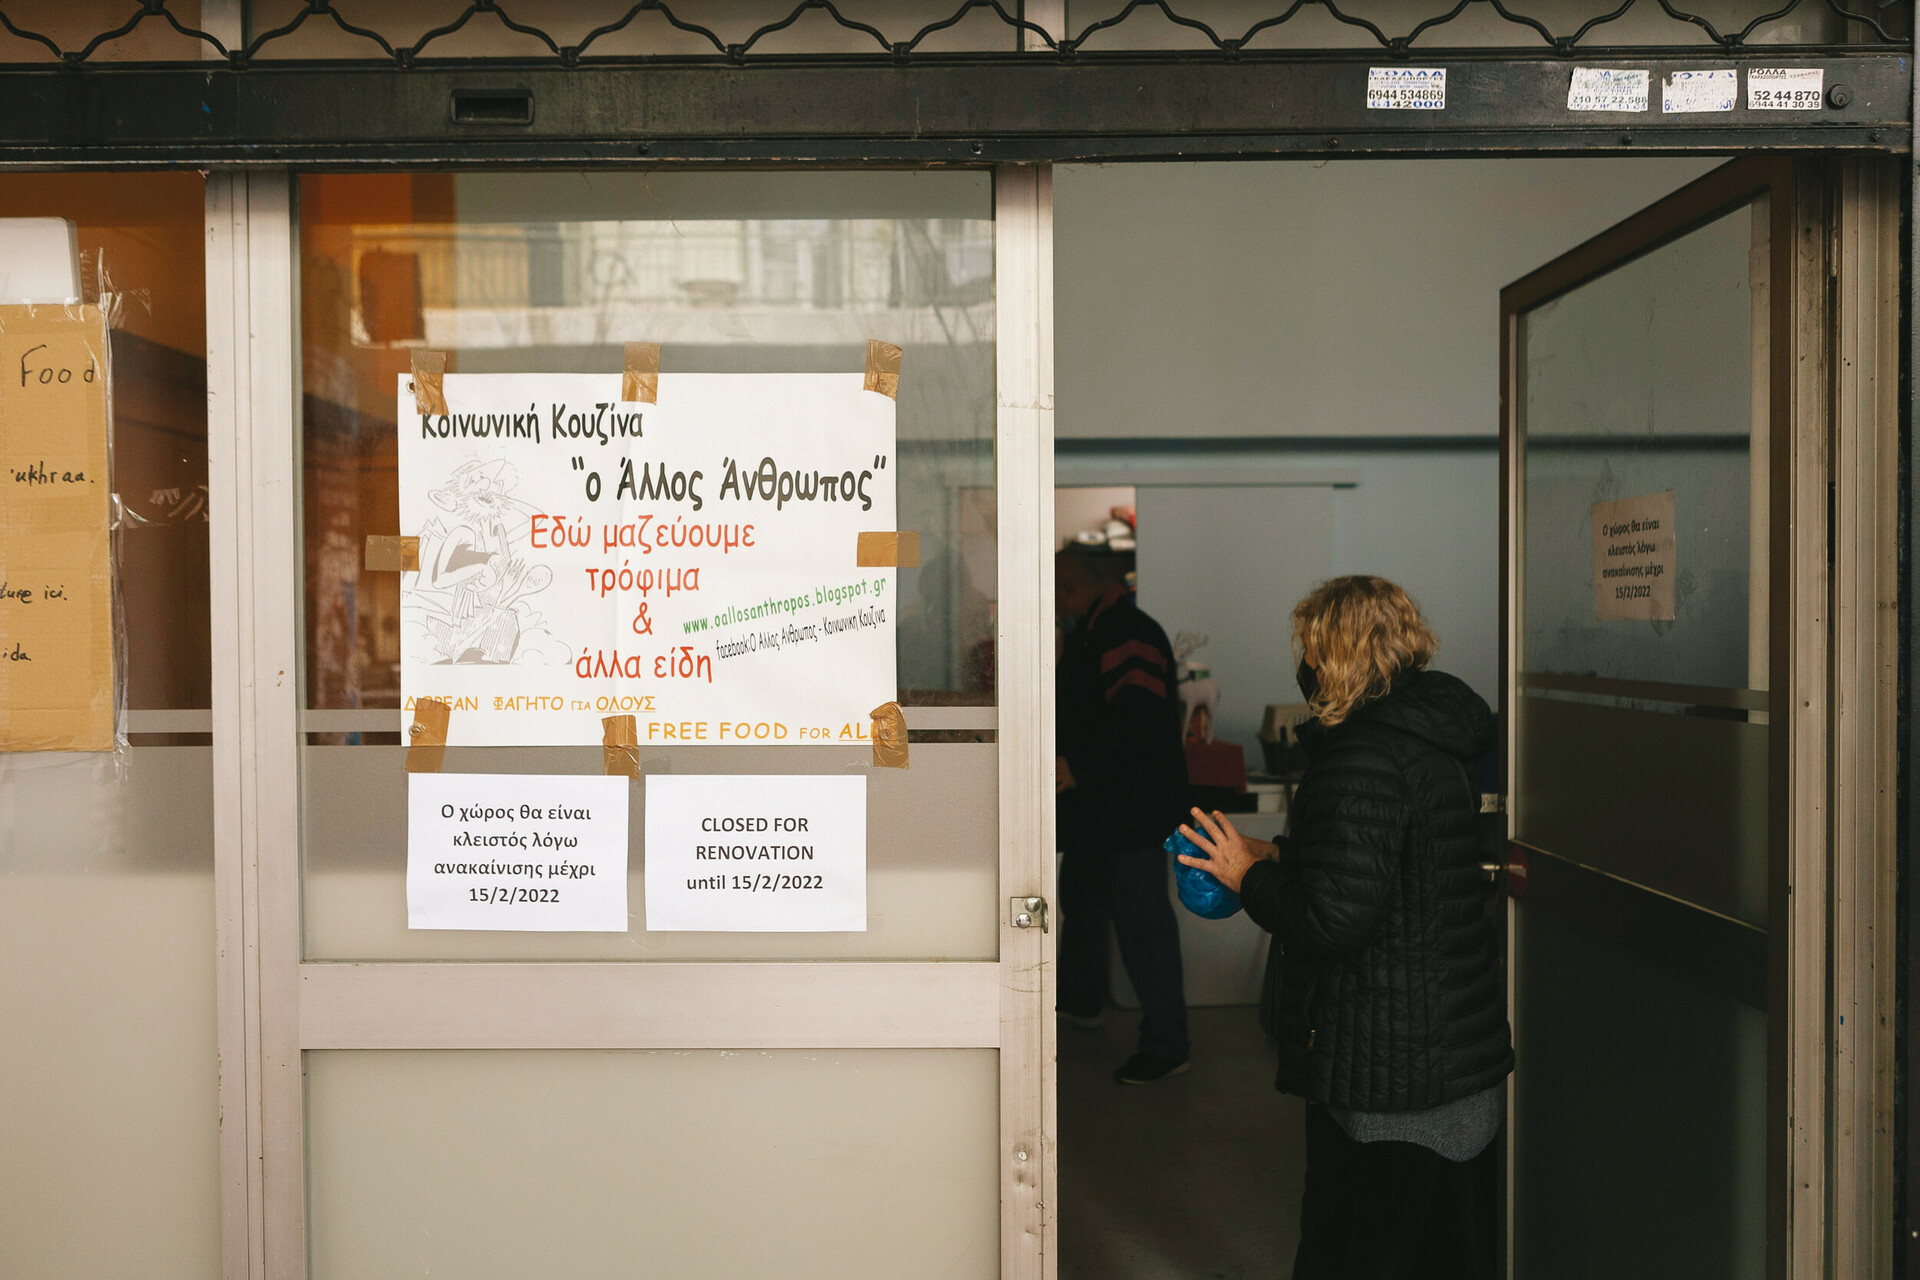 ΡΟΛΛΑ
ΓΚΑΡΑΖΟΠΟΡΤΕΣ
6944 534869
6442000
210 57 22.588
ΡΟΛΛΑ
ΓΚΑΡΑΖΟΠΟΡΤΕΣ
52 44 870
6944 41 30 39
Food
ukhraa.
ici.
ida
Κοινωνική Κουζίνα
"ο Άλλος Άνθρωπος"
Εδώ μαζεύουμε
τρόφιμα
&
άλλα είδη
www.oallosanthropos.blogspot.gr
facebook:Ο Άλλος Άνθρωπος - Κοινωνική Κουζίνα
ΔΩΡΕΑΝ ΦΑΓΗΤΟ ΓΙΑ ΟΛΟΥΣ
FREE FOOD FOR ALL
Ο χώρος θα είναι
κλειστός λόγω
ανακαίνισης μέχρι
15/2/2022
CLOSED FOR
RENOVATION
until 15/2/2022
Ο χώρος θα είναι
κλειστός λόγω
ανακαίνισης μέχρι
15/2/2022